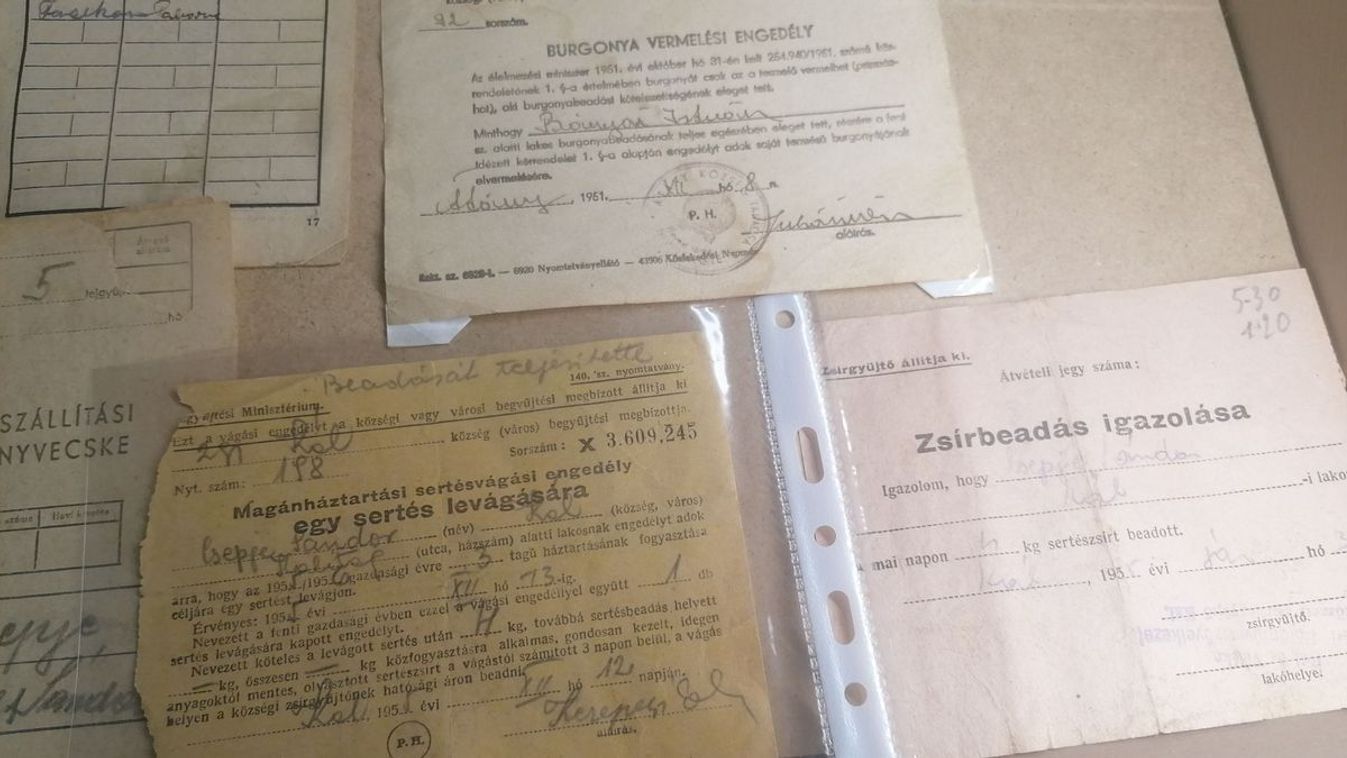 17
92 sorszám.
BURGONYA VERMELÉSI ENGEDÉLY
Az élelmezési miniszter 1951. évi október hó 31-én kelt 254.940/1951. számú kör-
rendeletének 1. §-a értelmében burgonyát csak az a termelő vermelhet (prizmáz-
hat), aki burgonyabeadási kötelezettségének eleget tett.
Minthogy István
sz. alatti lakos burgonyabeadásának teljes egészében eleget tett, részére a fent
idézett körrendelet 1. §-a alapján engedélyt adok saját termésű burgonyájának
elvermelésére.
, 1951. XII. hó 8 n.
P. H.
aláírás.
Rakt. sz. 6920-I. — 6920 Nyomtatványellátó — 43906 Közlekedési
5
hó
SZÁLLÍTÁSI
NYVECSKE
epje,
Sándor
Beadását teljesítette
140. sz. nyomtatvány.
Minisztérium.
Ezt a vágási engedélyt a községi vagy városi begyűjtési megbízott állítja ki
Kál község (város) begyűjtési megbízottja.
Nyt. szám: 198 Sorszám: X 3.609,245
Magánháztartási sertésvágási engedély
egy sertés levágására
Csepje Sándor (név) Kál (község, város)
(utca, házszám) alatti lakosnak engedélyt adok
arra, hogy az 195 /195 gazdasági évre 3 tagú háztartásának fogyasztása
céljára egy sertést levágjon.
Érvényes: 195 évi XII hó 13-ig.
Nevezett a fenti gazdasági évben ezzel a vágási engedéllyel együtt 1 db
sertés levágására kapott engedélyt.
Nevezett köteles a levágott sertés után kg, továbbá sertésbeadás helyett
— kg, összesen kg közfogyasztásra alkalmas, gondosan kezelt, idegen
anyagoktól mentes, olvasztott sertészsírt a vágástól számított 3 napon belül, a vágás
helyen a községi zsírgyűjtőnek hatósági áron beadni.
Kál, 195 évi XII hó 12 napján.
P. H.
aláírás.
5-30
1-20
Zsírgyűjtő állítja ki.
Átvételi jegy száma:
Zsírbeadás igazolása
Igazolom, hogy Csepje Sándor
Kál -i lakos
mai napon kg sertészsírt beadott.
Kál, 195 évi jan hó
zsírgyűjtő.
lakóhelye.